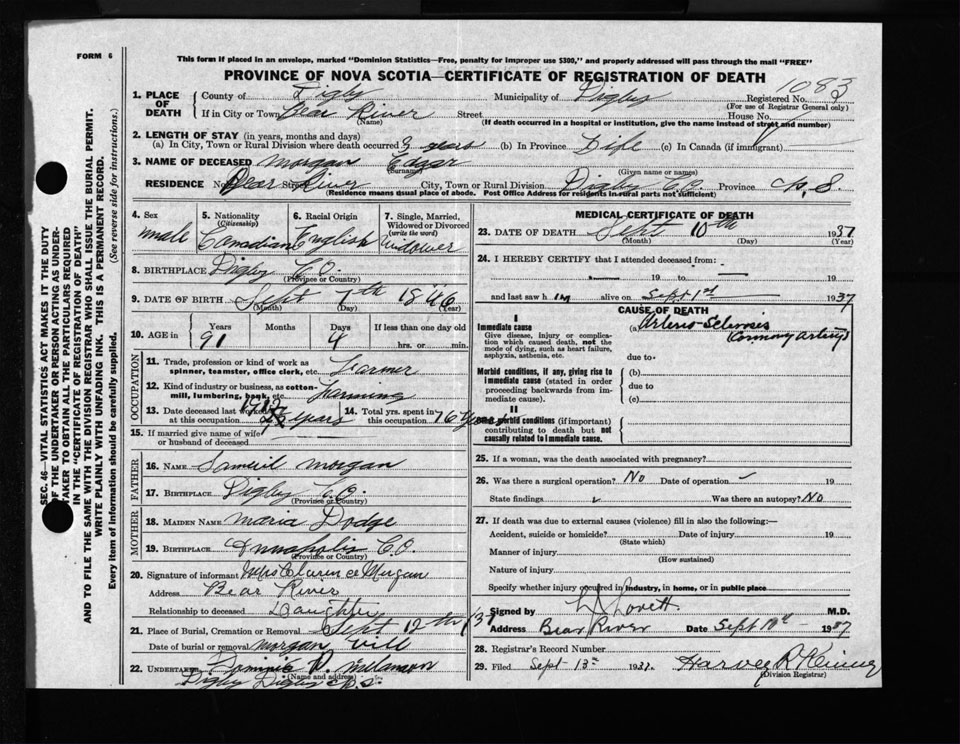 FORM 6
This form if placed in an envelope, marked "Dominion Statistics—Free, penalty for improper use $300," and properly addressed will pass through the mail "FREE"
PROVINCE OF NOVA SCOTIA—CERTIFICATE OF REGISTRATION OF DEATH
1083
1. PLACE OF DEATH
County of Digby Municipality of Digby Registered No.
(For use of Registrar General only)
If in City or Town Bear River Street House No.
(Name) (If death occurred in a hospital or institution, give the name instead of street and number)
2. LENGTH OF STAY (in years, months and days)
(a) In City, Town or Rural Division where death occurred 9 years (b) In Province Life (c) In Canada (if immigrant)
3. NAME OF DECEASED Morgan Edgar
(Surname) (Given name or names)
RESIDENCE No. Bear Street River City, Town or Rural Division Digby C.O. Province N.S.
(Residence means usual place of abode. Post Office Address for residents in rural parts not sufficient)
4. Sex
male
5. Nationality
(Citizenship)
Canadian
6. Racial Origin
English
7. Single, Married, Widowed or Divorced
(write the word)
Widower
8. BIRTHPLACE Digby C.O.
(Province or Country)
9. DATE OF BIRTH Sept 7th 1846
(Month) (Day) (Year)
10. AGE in
Years Months Days If less than one day old
91 4 hrs. or min.
OCCUPATION
11. Trade, profession or kind of work as spinner, teamster, office clerk, etc. Farmer
12. Kind of industry or business, as cotton-mill, lumbering, bank, etc. Farming
13. Date deceased last worked at this occupation 1912 25 years
14. Total yrs. spent in this occupation 76 years
15. If married give name of wife or husband of deceased
FATHER
16. NAME Samuel Morgan
17. BIRTHPLACE Digby C.O.
(Province or Country)
MOTHER
18. MAIDEN NAME Maria Dodge
19. BIRTHPLACE Annapolis C.O.
(Province or Country)
20. Signature of informant Mrs Clarence Morgan
Address Bear River
Relationship to deceased Daughter
21. Place of Burial, Cremation or Removal Sept 12th /37
Date of burial or removal Morgan Vill
22. UNDERTAKER
(Name and address)
Digby Digby N.S.
MEDICAL CERTIFICATE OF DEATH
23. DATE OF DEATH Sept 10th 1937
(Month) (Day) (Year)
24. I HEREBY CERTIFY that I attended deceased from:
19 to 19
and last saw him alive on Sept 1st 1937
CAUSE OF DEATH
I
Immediate cause
Give disease, injury or complication which caused death, not the mode of dying, such as heart failure, asphyxia, asthenia, etc.
(a) Arterio-Sclerosis
(Coronary Arterys)
due to
Morbid conditions, if any, giving rise to immediate cause (stated in order proceeding backwards from immediate cause).
(b)
due to
(c)
II
Other morbid conditions (if important) contributing to death but not causally related to immediate cause.
25. If a woman, was the death associated with pregnancy?
26. Was there a surgical operation? No Date of operation — 19
State findings Was there an autopsy? No
27. If death was due to external causes (violence) fill in also the following:—
Accident, suicide or homicide? Date of injury 19
(State which)
Manner of injury
(How sustained)
Nature of injury
Specify whether injury occurred in industry, in home, or in public place
Signed by Lovett M.D.
Address Bear River Date Sept 1937
28. Registrar's Record Number
29. Filed Sept 13th 1937
(Division Registrar)
SEC. 46—VITAL STATISTICS ACT MAKES IT THE DUTY
OF THE UNDERTAKER OR PERSON ACTING AS UNDER-
TAKER TO OBTAIN ALL THE PARTICULARS REQUIRED
IN THE "CERTIFICATE OF REGISTRATION OF DEATH"
AND TO FILE THE SAME WITH THE DIVISION REGISTRAR WHO SHALL ISSUE THE BURIAL PERMIT.
WRITE PLAINLY WITH UNFADING INK. THIS IS A PERMANENT RECORD.
Every item of information should be carefully supplied. (See reverse side for instructions.)